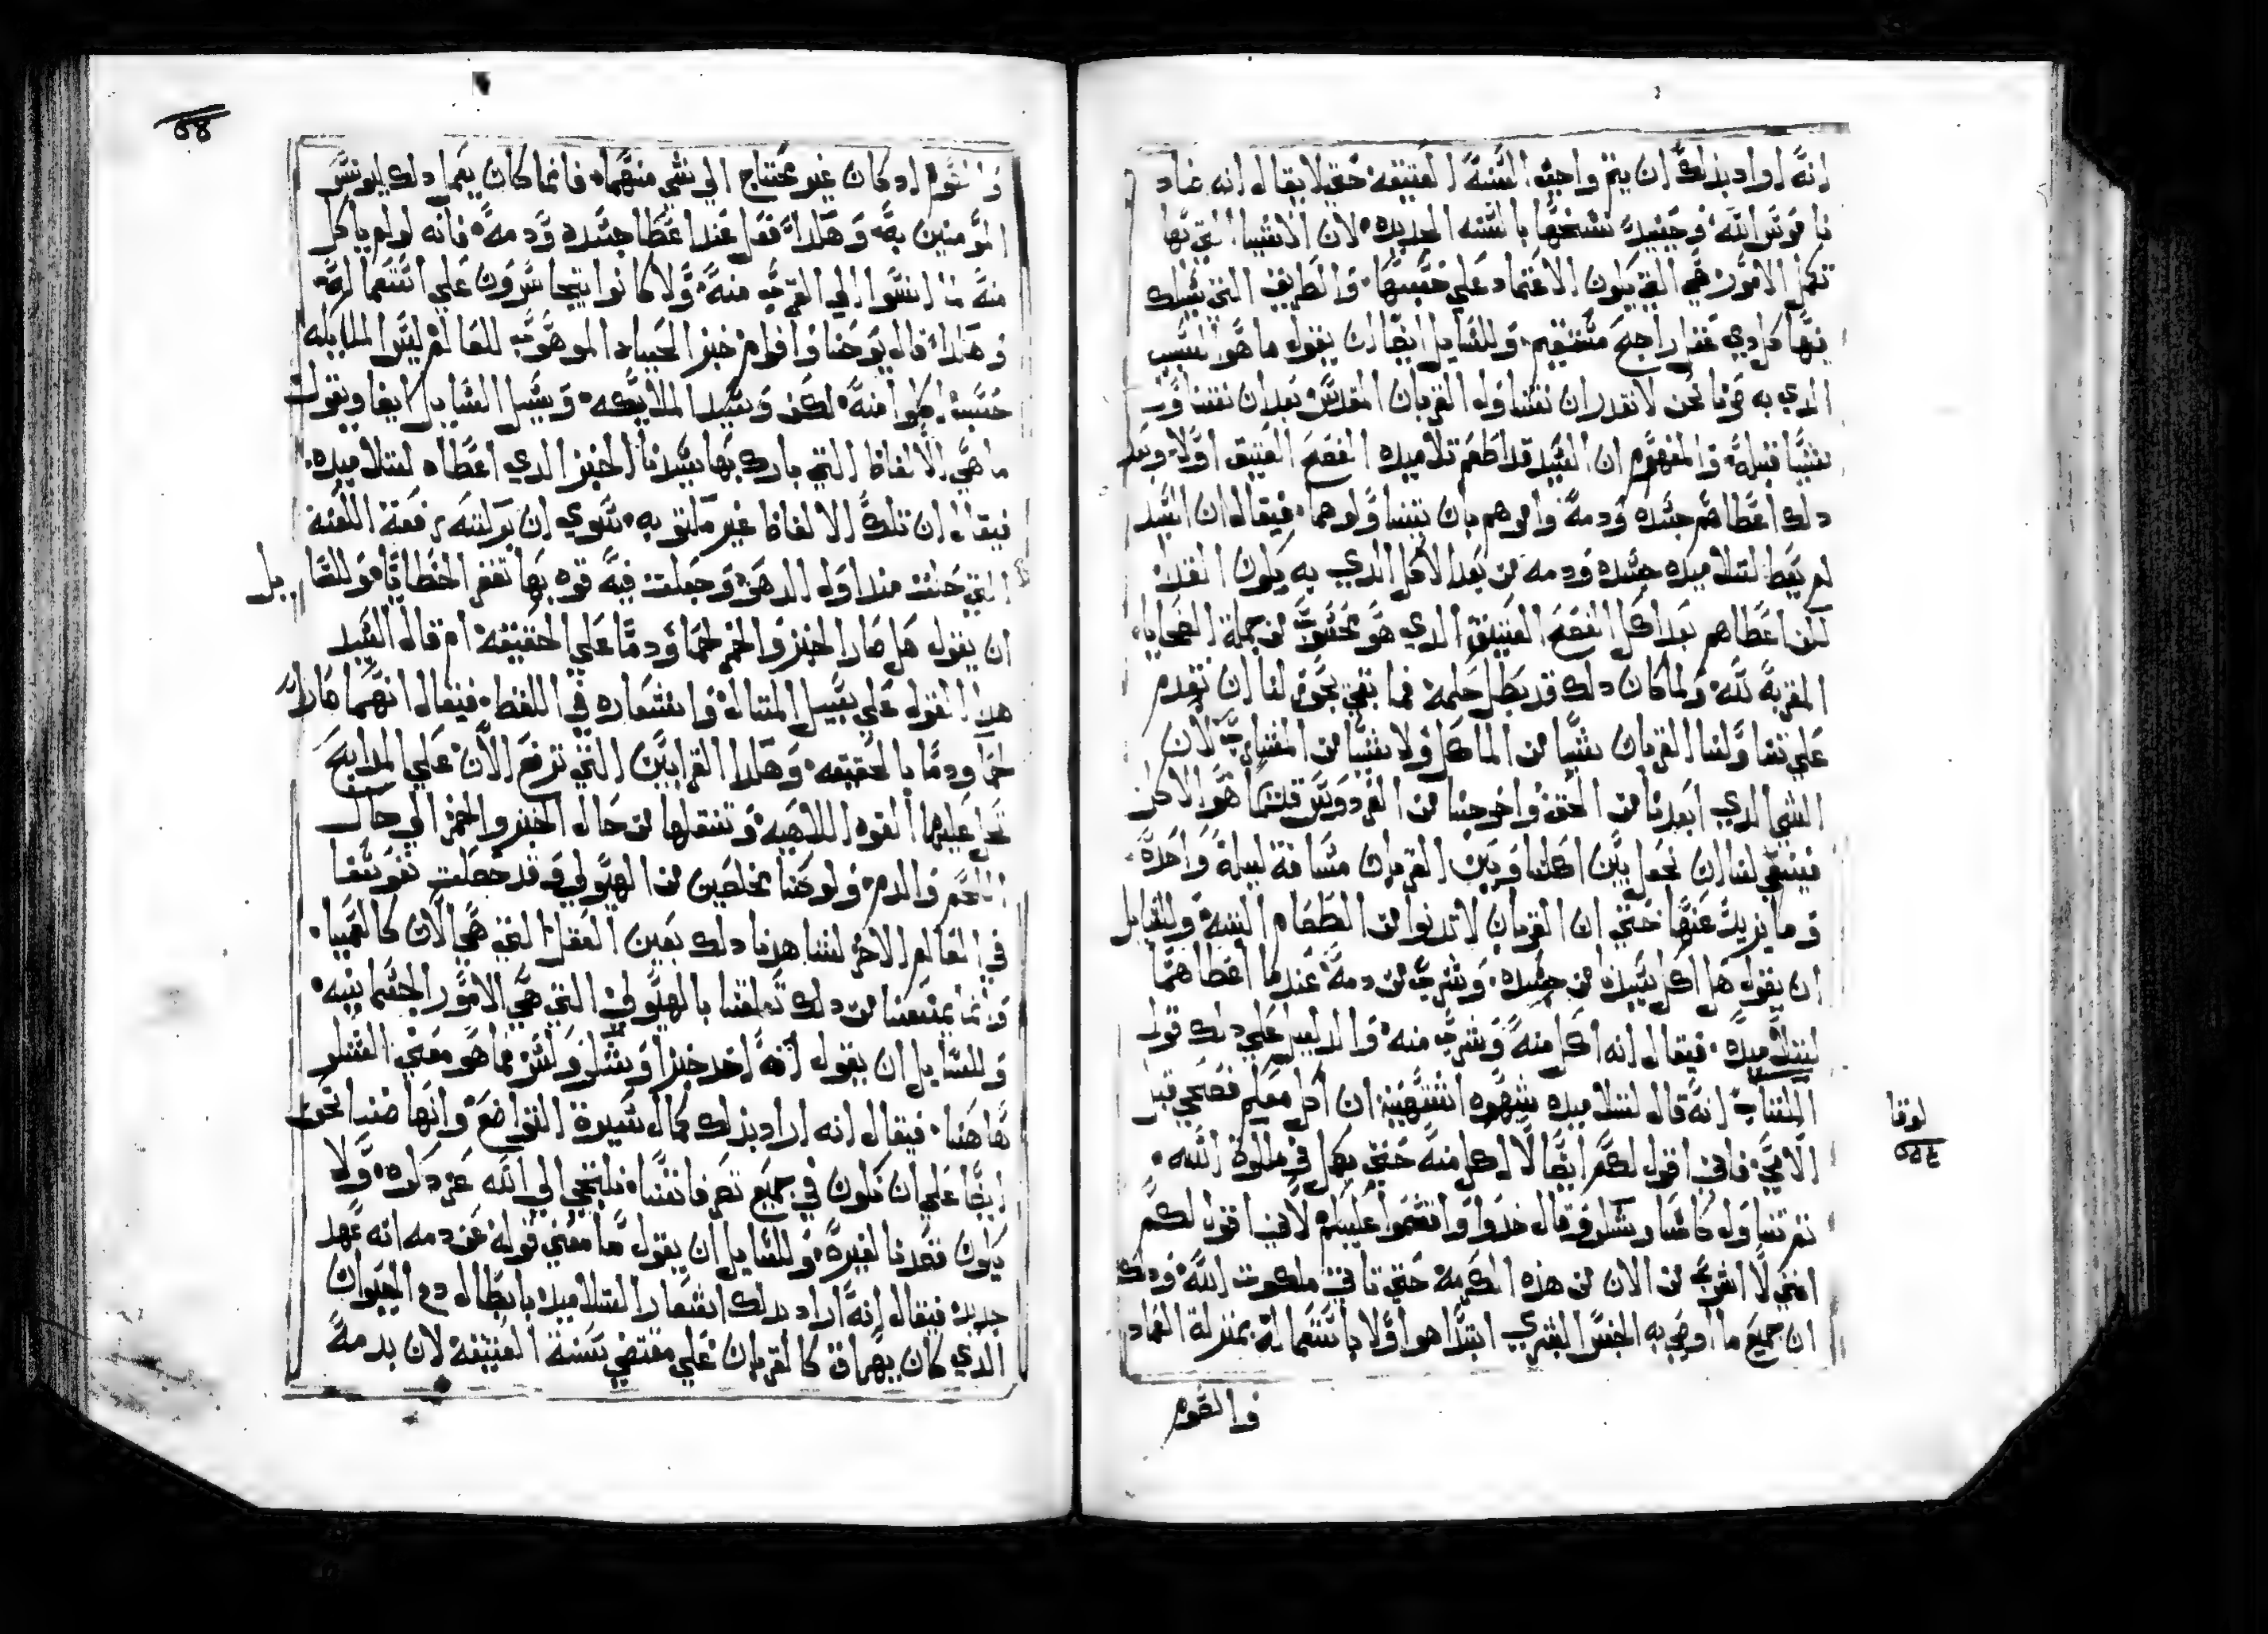 انه اراد بذلك ان يتم واجب السنة العتيقة حتى لا يقال انه عاد
ناموس الله وحينيد نسخها بالسنه الجديده لان الاشيا التي بها
تكمل الامور هي التي يكون الاعتماد علي حسبها والطريف التي يسلك
فيها كل دي عقل راجح مستقيم وللسايل ايضا ان يقول ما هو السبب
الدي به صرنا نحن لا نقدر ان نتناول القربان المقدس بعد ان نتناول
شيا قبله والمفهوم ان السيد قد اطعم تلاميده الفصح العتيق اولا وبعد
دلك اعطاهم جسده ودمه وامرهم بان يتناولوهما فيقال ان السيد
لم يعط لتلاميده جسده ودمه من بعد الاكل الدي به يكون الغدا
لكن اعطاهم بعد اكل الفصح العتيق الدي هو محسوب من جملة الضحايا
المقربة لله ولما كان دلك قد بطل حكمه فما بقي يجوز لنا ان نقدم
علي تناولنا القربان شيا من الماكل ولا شيا من المشارب لان
الشي الدي ابعدنا من الحق واخرجنا من الفردوس قديما هو الاكل
فينبغي لنا ان نجعل بين اكلنا وبين القربان مسافة ليلة واحده
وما يزيد عنها حتي ان القربان لا تدنوا من الطعام البته وللقايل
ان يقول هل اكل سيدنا من جسده وشرب من دمه عندما اعطاهما
لتلاميده فيقال انه اكل منه وشرب منه والدليل علي دلك قول
الكتاب انه قال لتلاميده شهوه اشتهيت ان اكل معكم فصحي قبل
الامي فاني اقول لكم ايضا لا اكل منه حتي يكمل في ملكوة الله
تم تناول كاسا وشكر وقال خدوا واقسموا عليكم لاني اقول لكم
انني لا اشرب من الان من هذه الكرمة حتي تاتي ملكوت الله ودلك
ان جميع ما اوصي به الجنس البشري ابتدا هو اولا باستعماله بمنزلة العماد
والصوم
لوقا
والصوم اد كان غير محتاج الي شي منهما فانما كان يعمل دلك ليونس
المومنين به وهكدا فعل عندما اعطا جسده ودمه فانه لو لم ياكل
منه لما انسوا الي القرب منه ولا كانوا يتجاسرون علي استعماله
وهكدا قال يوحنا فم الدهب خبز الحياه الموهوب للعالم ليس الملايكه
حسب اكلوا منه لكن وسيد الملايكه وسيل السايل ايضا ويقول
ما هي الالفاظ التي بارك بها سيدنا الخبز الدي اعطاه لتلاميده
فيقال ان تلك الالفاظ غير مكتوبه سوي ان بركته رفعة اللعنة
التي حلت مند اول الدهر وجعلت فيه قوه بها تغفر الخطايا وللسايل
ان يقول هل صار الخبز والخمر لحما ودما علي الحقيقه ام قال السيد
هدا القول علي سبيل المتال واستعاره في اللفظ فيقال انهما صارا
لحما ودما بالحقيقه وهكدا القرابين التي ترفع الان علي المدابح
تحل عليها القوه اللاهيه وتنقلها من حال الخبز والخمر الي حال
اللحم والدم ولو كنا مخلصين من الهيولي وقد حصلت نفوسنا
في العالم الاخر لشاهدنا دلك بعين العقل التي هي الان كالعميا
وانما يمنعنا من دلك تعلقنا بالهيولي التي هي الامور الجسمانيه
وللسايل ان يقول انه اخد خبزا وشكر وكسر فما هو معني الشكر
هاهنا فيقال انه اراد بذلك كمال سيرة التواضع وانها ضدا نحن
ايضا علي ان نكون في جميع تصرفاتنا نلتجي الي الله عز دكره ولا
يكون قصدنا لغيره وللسايل ان يقول ما معني قوله عن دمه انه عهد
جديد فيقال انه اراد بدلك اشعار التلاميد بابطال دم الحيوان
الدي كان يهراق كالقربان علي مقتضي السنة العتيقة لان بدمه